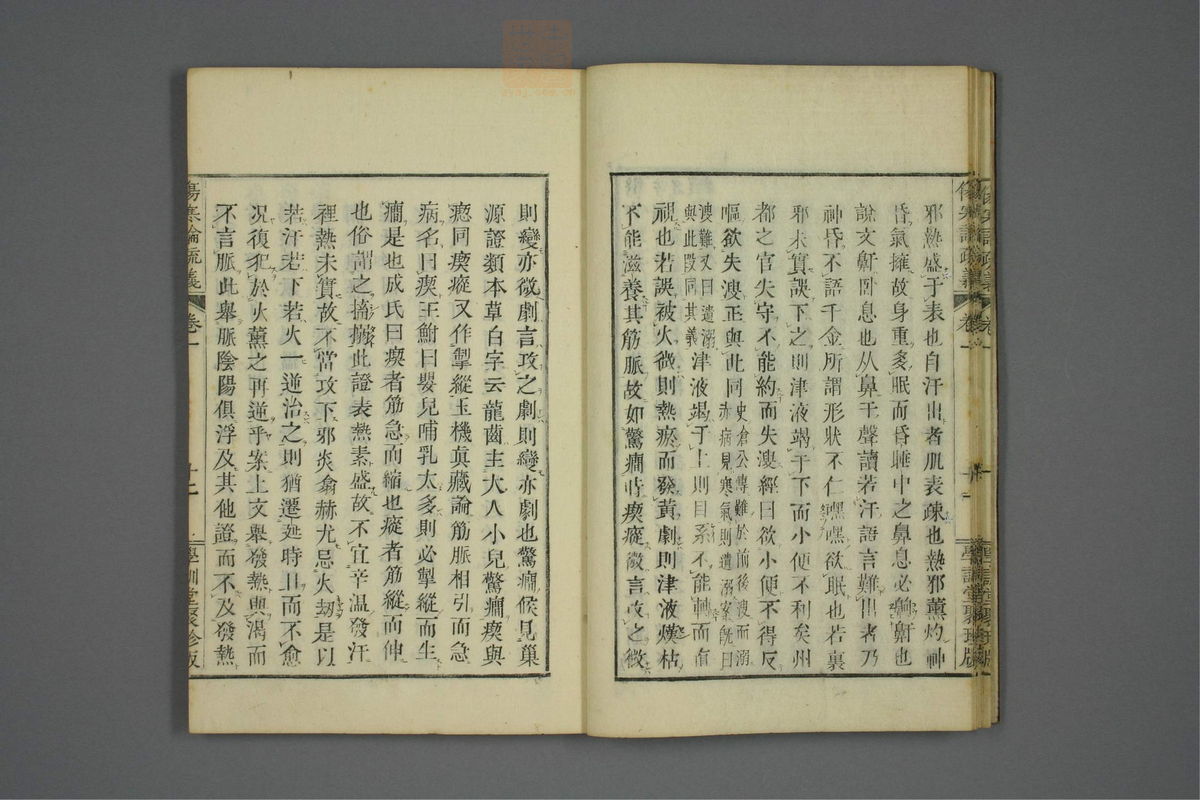 邪熱盛于表也自汗出者肌表疎也熱邪薰灼神
昏氣擁故身重多眠而昏睡中之鼻息必鼾鼾也
說文鼾臥息也从鼻干聲讀若汗語言難出者乃
神昏不語千金所謂形狀不仁嘿嘿欲眠也若裏
邪未實誤下之則津液竭于下而小便不利矣州
都之官失守不能約而失溲經曰欲小便不得反
嘔欲失溲正與此同史倉公傳難於前後溲而溺
赤病見寒氣則遺溺案旣曰
溲難又曰遺溺
與此段同其義津液竭于上則目系不能轉而直
視也若誤被火微則熱瘀而發黃劇則津液燥枯
不能滋養其筋脈故如驚癇時瘈瘲微言攻之微
傷寒論疏義
卷一
學訓堂聚珍版
則變亦微劇言攻之劇則變亦劇也驚癇候見巢
源證類本草白字云龍齒主大人小兒驚癇瘈與
瘛同瘈瘲又作掣縱玉機眞藏論筋脈相引而急
病名曰瘈王鮒曰嬰兒哺乳太多則必掣縱而生
癇是也成氏曰瘈者筋急而縮也瘲者筋縱而伸
也俗謂之搐搦此證表熱素盛故不宜辛温發汗
裡熱未實故不當攻下邪炎翕赫尤忌火劫是以
若汗若下若火一逆治之則猶遷延時日而不愈
况復犯於火薰之再逆乎案上文舉發熱與渴而
不言脈此舉脈陰陽俱浮及其他證而不及發熱
傷寒論疏義
卷一
學訓堂聚珍版